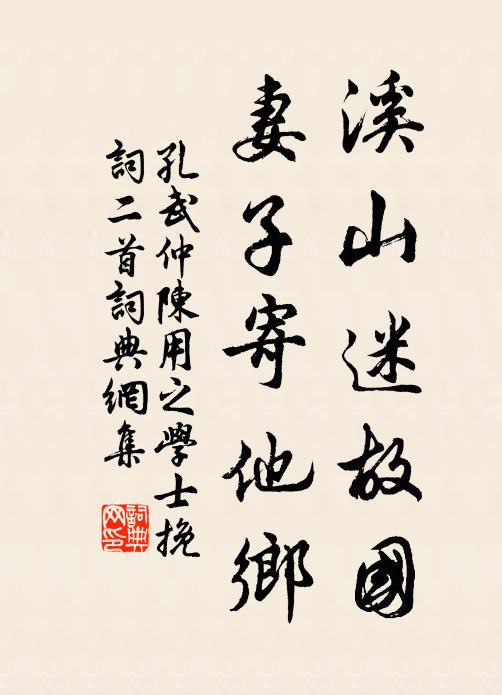 溪山迷故國
妻子寄他鄉
孔武仲陳用之學士挽
詞二首詞典網集
詞典
网印